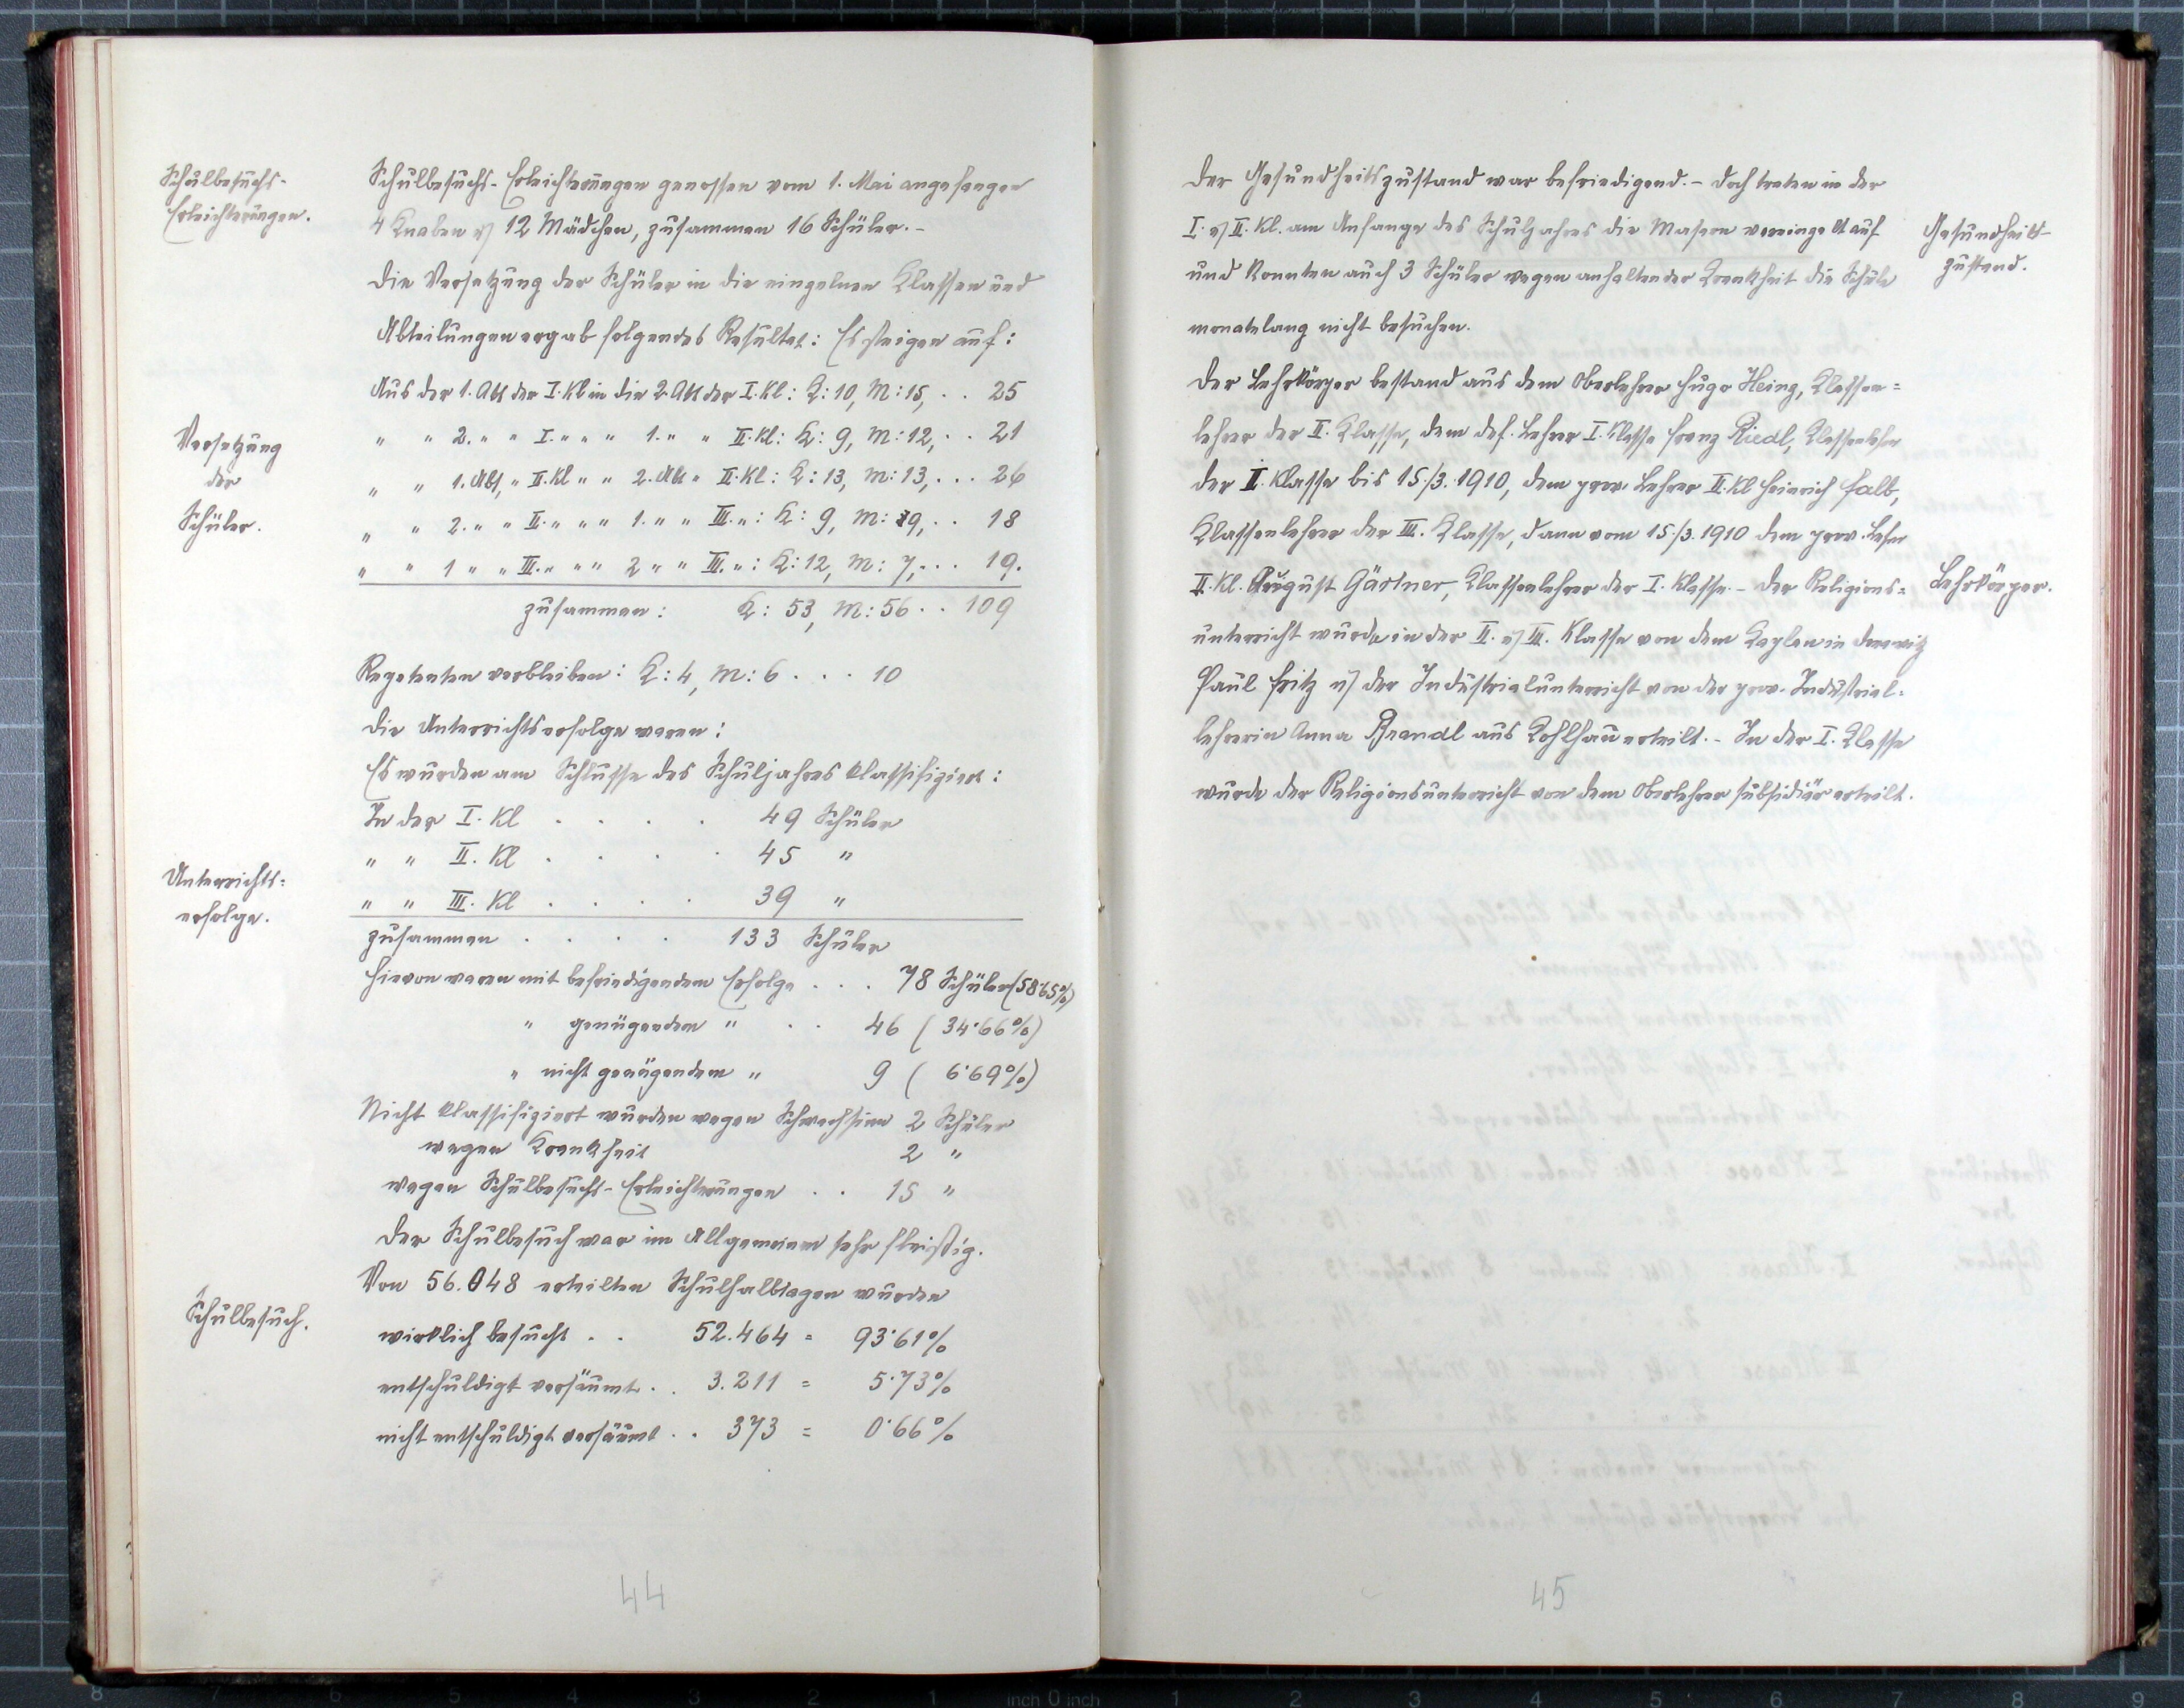 Schulbesuchs-
Erleichterungen.
Schulbesuchs-Erleichterungen genossen vom 1. Mai angefangen
4 Knaben u. 12 Mädchen, zusammen 16 Schüler.-
Die Versetzung der Schüler in die einzelnen Klassen und
Abteilungen ergab folgendes Resultat: Es steigen auf:
Aus der 1. Abt der I. Kl in die 2. Abt der I. Kl: K: 10, M: 15, . . 25
" " 2. " " I. " " " 1. " " II. Kl: K: 9, M: 12, . . 21
" " 1. Abt, " II. Kl " " 2. Abt " II. Kl: K: 13, M: 13, . . . 26
" " 2. " " II. " " " 1. " " III. ": K: 9, M: 9, . . 18
" " 1 " " III. " " " 2 " " III. ": K: 12, M: 7, . . . 19.
zusammen: K: 53, M: 56 . . 109
Versetzung
der
Schüler.
Repetenten verbleiben: K: 4, M: 6 . . . 10
Die Unterrichtserfolge waren:
Es wurden am Schlusse des Schuljahres klassifiziert:
In der I. Kl . . . . 49 Schüler
" " II. Kl . . . . 45 "
" " III. Kl . . . . 39 "
zusammen . . . . 133 Schüler
Unterrichts=
erfolge.
Hievon waren mit befriedigendem Erfolge . . . 78 Schüler (58·65%)
" genügendem " . . 46 ( 34·66%)
" nicht genügendem " 9 ( 6·69%)
Nicht klassifiziert wurden wegen Schwachsinn 2 Schüler
wegen Krankheit 2 "
wegen Schulbesuchs-Erleichterungen . . 15 "
Der Schulbesuch war im Allgemeinen sehr fleißig.
Von 56.048 erteilten Schulhalbtagen wurden
wirklich besucht . . 52.464 = 93·61%
entschuldigt versäumt . . 3.211 = 5·73%
nicht entschuldigt versäumt . . 373 = 0·66%
Schulbesuch.
44
Der Gesundheitszustand war befriedigend. - Doch traten in der
I. u. II. Kl. am Anfange des Schuljahres die Masern vereinzelt auf
und konnten auch 3 Schüler wegen anhaltender Krankheit die Schule
monatelang nicht besuchen.
Gesundheits-
zustand.
Der Lehrkörper bestand aus dem Oberlehrer Hugo Heinz, Klassen=
lehrer der II. Klasse, dem def. Lehrer I. Klasse Franz Riedl, Klassenlehrer
der I. Klasse bis 15./3. 1910, dem prov. Lehrer II. Kl Heinrich Falb,
Klassenlehrer der III. Klasse, dann vom 15./3. 1910 dem prov. Lehrer
II. Kl. August Gärtner, Klassenlehrer der I. Klasse. - Der Religions=
unterricht wurde in der II. u. III. Klasse von dem Kaplan in
Paul Fritz u. der Industrialunterricht von der prov. Industrial-
lehrerin Anna Brandl aus Kohlhau erteilt. - In der I. Klasse
wurde der Religionsunterricht von dem Oberlehrer subsidiär erteilt.
Lehrkörper.
45